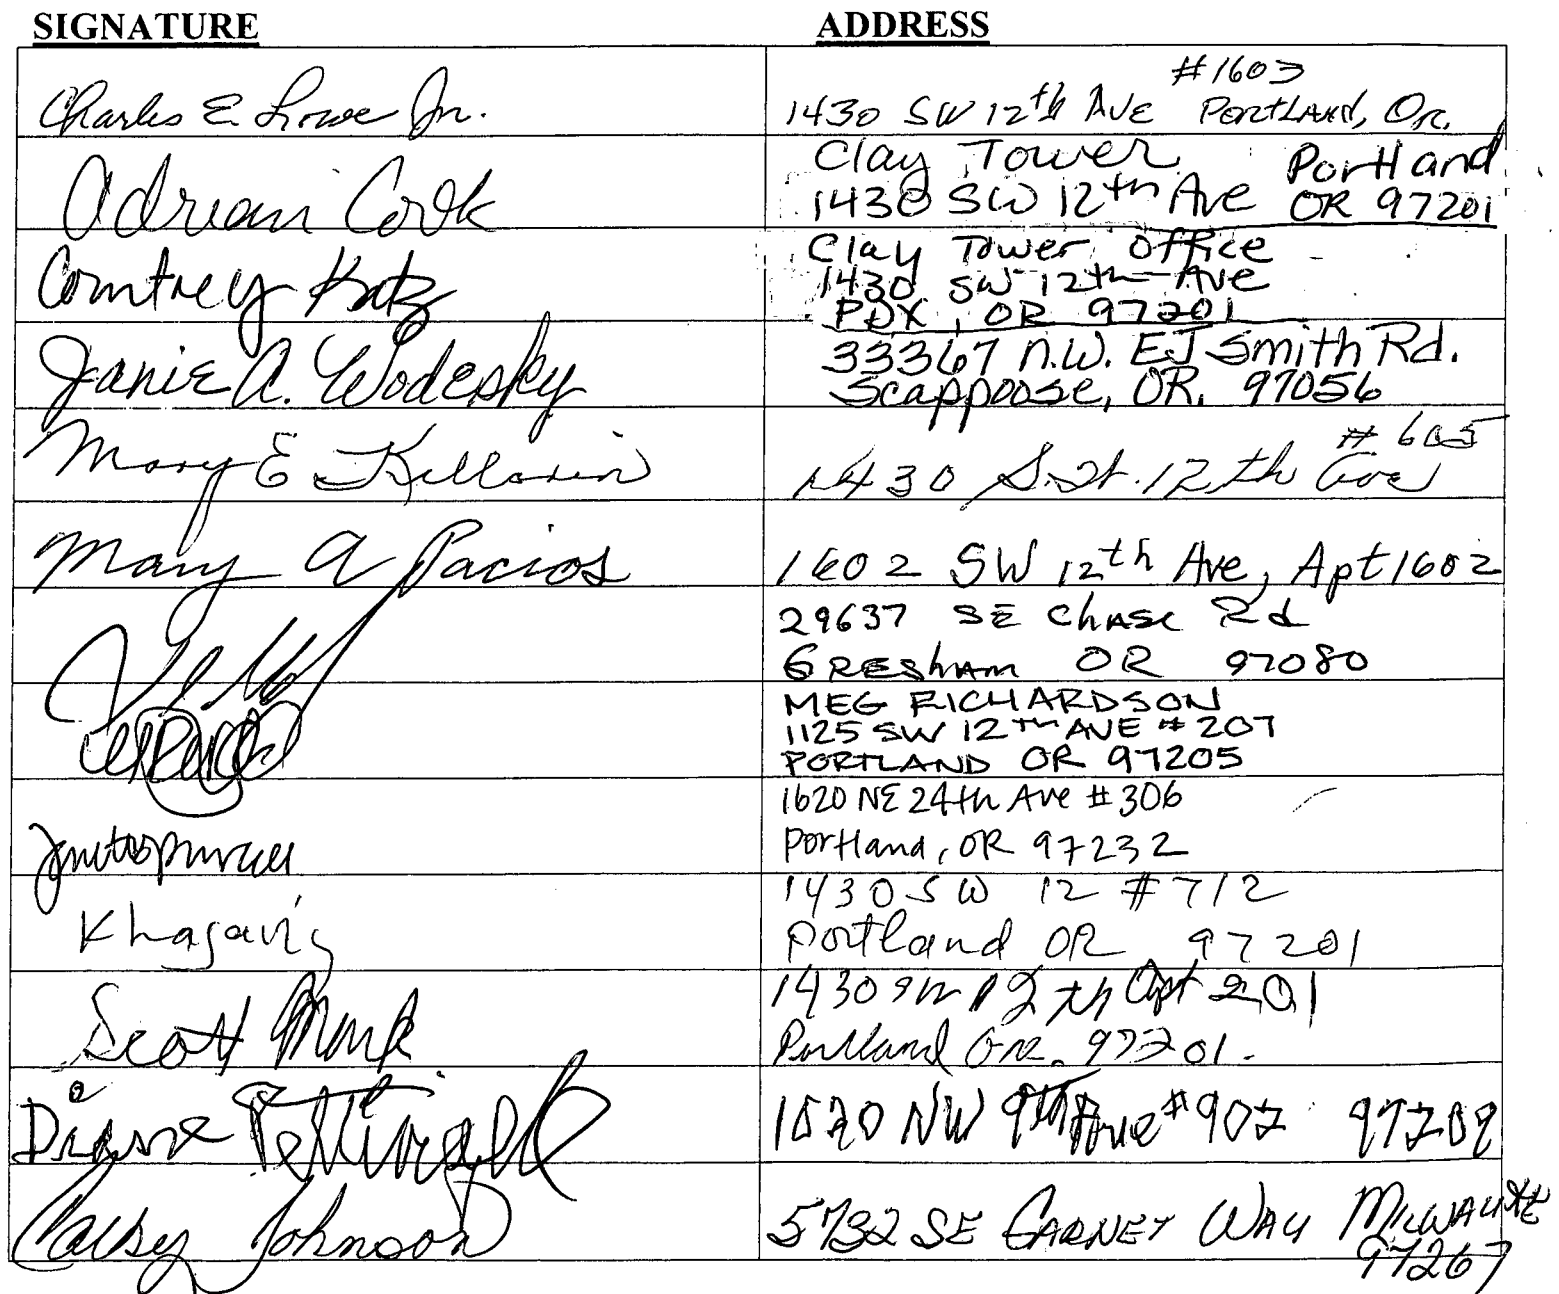 SIGNATURE ADDRESS
Charles E. Lowe Jr.
#1603
1430 SW 12th AVE PORTLAND, Or.
Adrean Cook
Clay Tower Portland
1430 SW 12th Ave OR 97201
Courtney Katz
Clay Tower Office
1430 SW 12th Ave
PDX, OR 97201
Janie A. Wodesky
33367 N.W. EJ Smith Rd.
Scappoose, OR. 97056
Mary E
# 605
1430 S.W. 12th Ave
Mary A Pacios
1602 SW 12th Ave, Apt 1602
29637 SE Chase Rd
GRESham OR 97080
MEG RICHARDSON
1125 SW 12TH AVE # 207
PORTLAND OR 97205
1620 NE 24th Ave # 306
Portland, OR 97232
1430 SW 12 # 712
Portland OR 97201
Scott
1430 SW 12th Apt 201
Portland Or. 97201.
Diane
NW 9th Ave #902 97209
Johnson
5732 SE GARNET WAY MILWAUKIE
97267